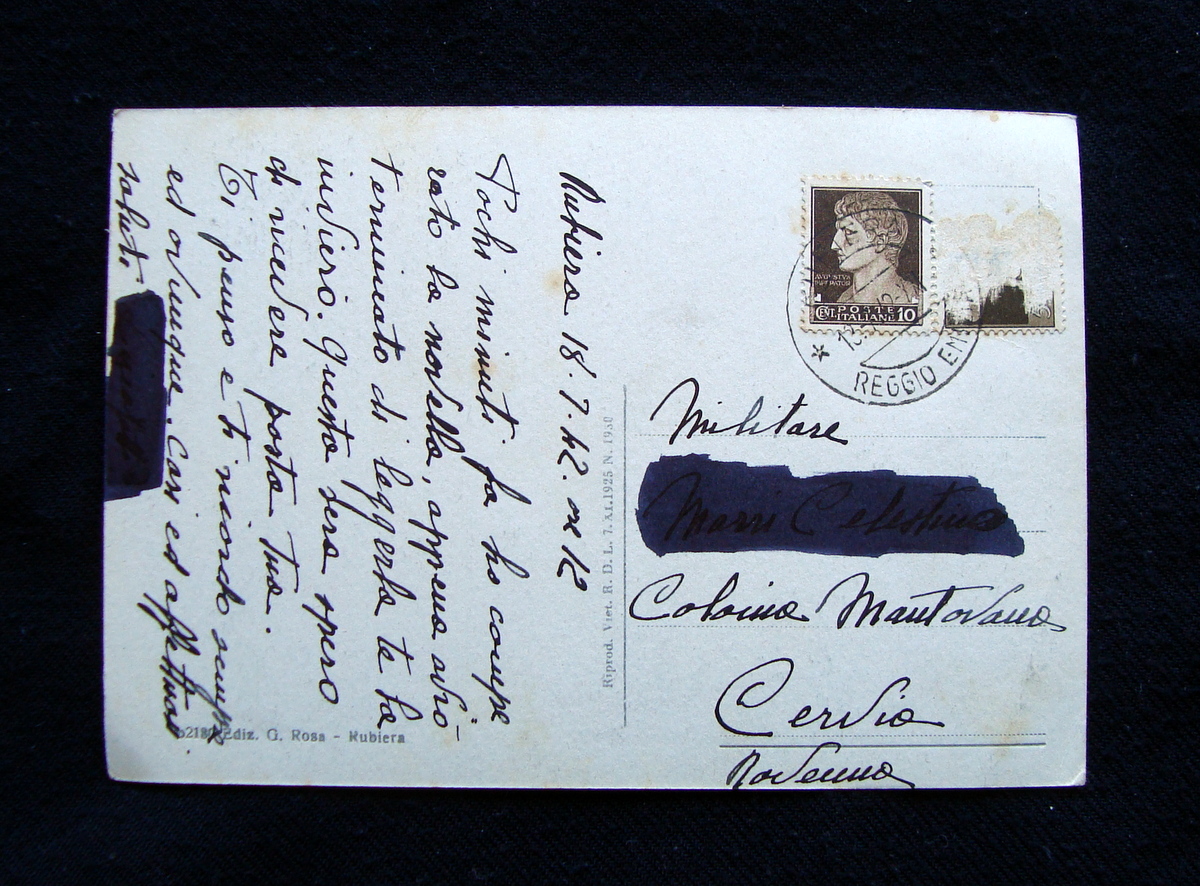 Rubiera 18.7.42. ore 12
Pochi minuti fa ho compe
rato la novella, appena avrò
terminato di leggerla te la
invierò. Questa sera spero
di ricevere posta tua.
Ti penso e ti ricordo sempre
ed ovunque. Cari ed affettuosi
saluti
Riprod. Viet. R. D. L. 7.XI.1925 N. 1950
Ediz. G. Rosa - Rubiera
AVGVSTVS
IMPERATOR
CENT. POSTE ITALIANE 10
REGGIO EM
Militare
Celestino
Colonia Mantovana
Cervia
Ravenna